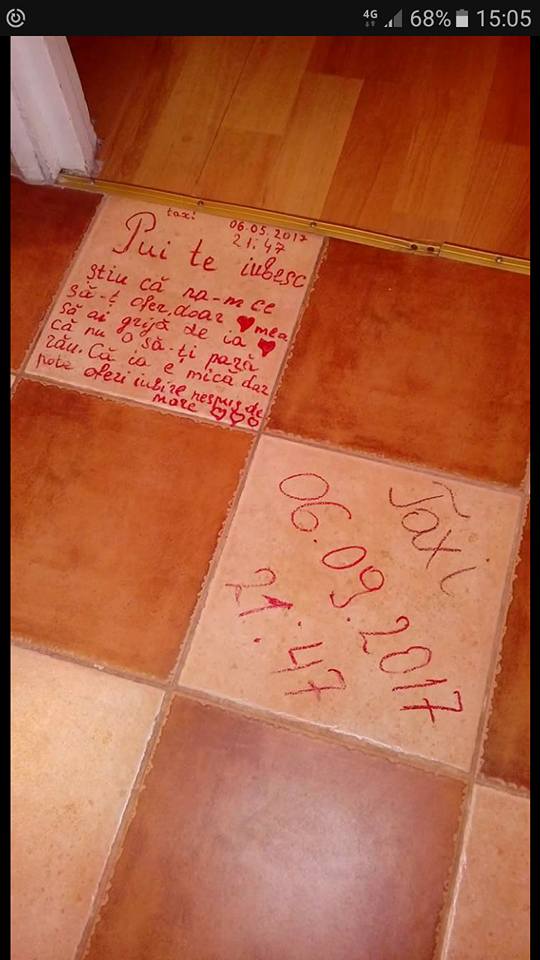 4G 68% 15:05
taxi 06.05.2017
21:47
Pui te iubesc
știu că na-m ce
să-ț ofer,doar ♥ mea
să ai grijă de ia ♥
că nu o să-ți pază
rău. Că ia e mică dar
pote oferi iubire nespus de
mare ♡♡♡
Taxi
06.09.2017
21:47